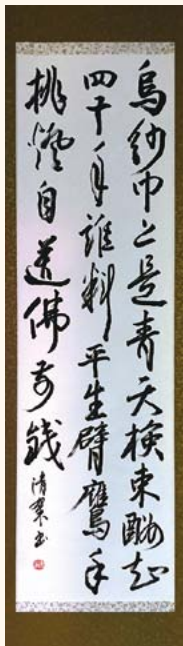 烏紗巾上是青天検束酬知
四十年誰料平生臂鷹手
挑燈自送佛前錢
清書